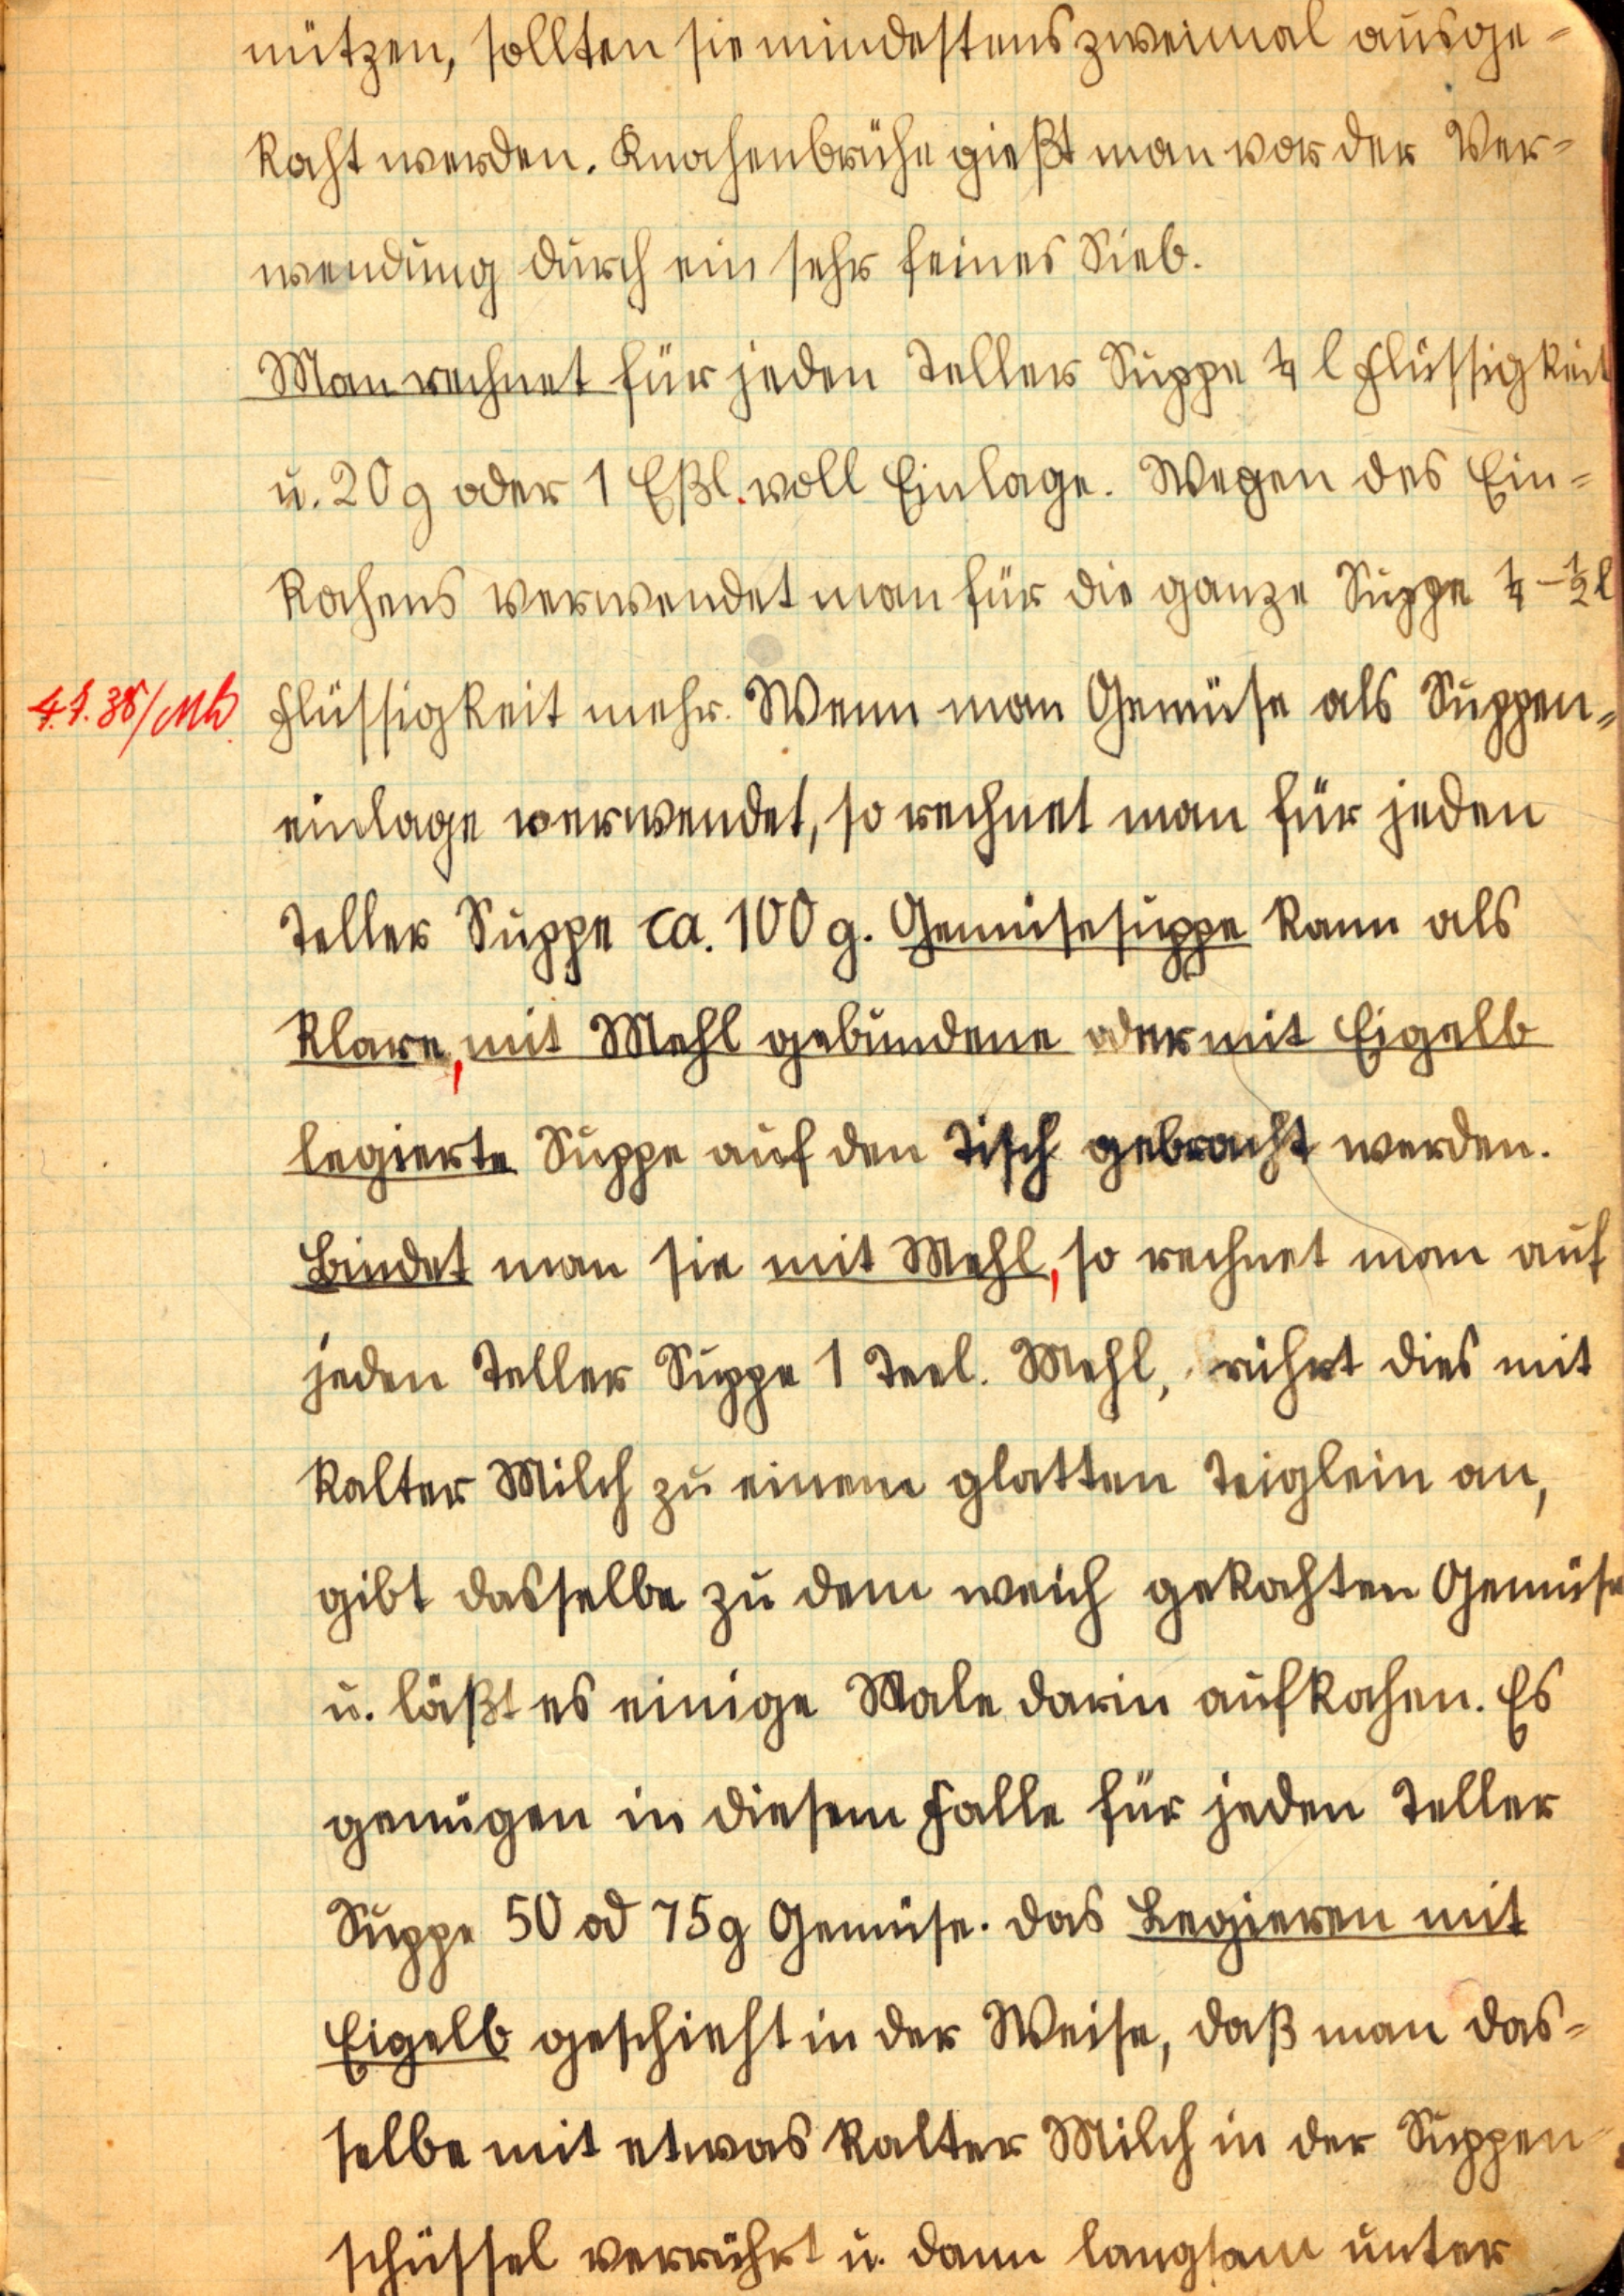 nützen, sollten sie mindestens zweimal ausge-
kocht werden. Knochenbrühe gießt man vor der Ver-
wendung durch ein sehr feines Sieb.
Man rechnet für jeden Teller Suppe ¼ l Flüssigkeit
u. 20 g oder 1 Eßl. voll Einlage. Wegen des Ein-
kochens verwendet man für die ganze Suppe ¼ - ½ l
Flüssigkeit mehr. Wenn man Gemüse als Suppen-
einlage verwendet, so rechnet man für jeden
Teller Suppe ca. 100 g. Gemüsesuppe kann als
klare, mit Mehl gebundene oder mit Eigelb
legierte Suppe auf den Tisch gebracht werden.
Bindet man sie mit Mehl, so rechnet man auf
jeden Teller Suppe 1 Teel. Mehl, rührt dies mit
kalter Milch zu einem glatten Teiglein an,
gibt dasselbe zu dem weich gekochten Gemüse
u. läßt es einige Male darin aufkochen. Es
genügen in diesem Falle für jeden Teller
Suppe 50 od 75g Gemüse. Das Legieren mit
Eigelb geschieht in der Weise, daß man das-
selbe mit etwas kalter Milch in der Suppen-
schüssel verrührt u. dann langsam unter